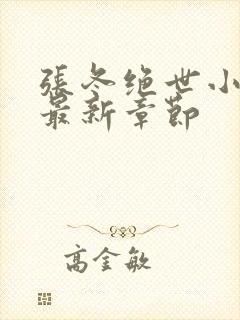 張冬绝世小
最新章節
高金敏